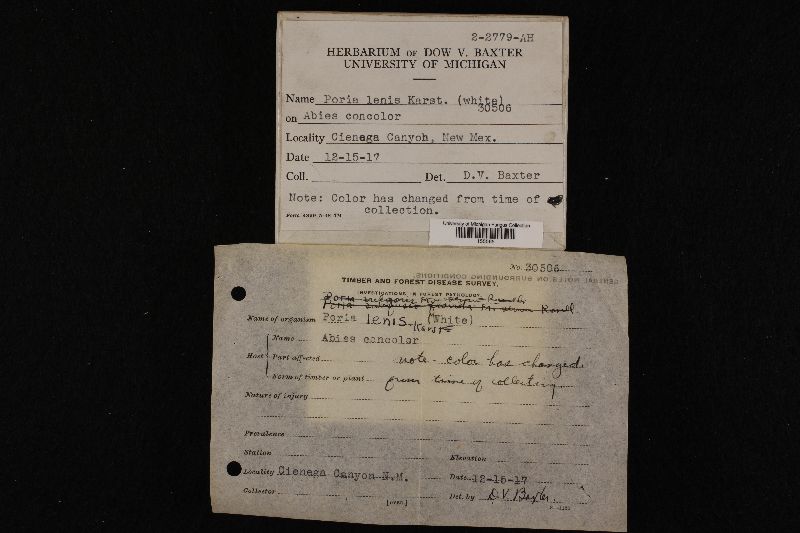 2-2779-AH
HERBARIUM OF DOW V. BAXTER
UNIVERSITY OF MICHIGAN
Name Poria lenis Karst. (white)
30506
on Abies concolor
Locality Cienega Canyon, New Mex.
Date 12-15-17
Coll. Det. D.V. Baxter
Note: Color has changed from time of
collection.
University of Michigan Fungus Collection
No. 30506
TIMBER AND FOREST DISEASE SURVEY.
INVESTIGATIONS IN FOREST PATHOLOGY.
Name of organism Poria lenis (White)
Karst
Name Abies concolor
Host Part affected note - color has changed
Form of timber or plant from time of collecting
Nature of injury
Prevalence
Station Elevation
Locality Cienega Canyon N.M. Date 12-15-17
Collector Det. by D.V. Baxter.
[OVER]